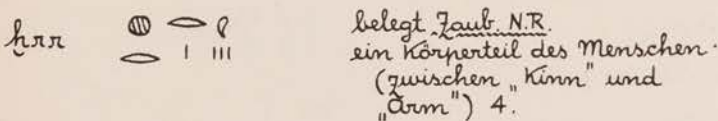 ḫrr 𓐍𓂋𓂋𓏤𓄹𓏥 belegt Zaub. N.R.
ein Körperteil des Menschen.
(zwischen „Kinn" und
„Arm") 4.